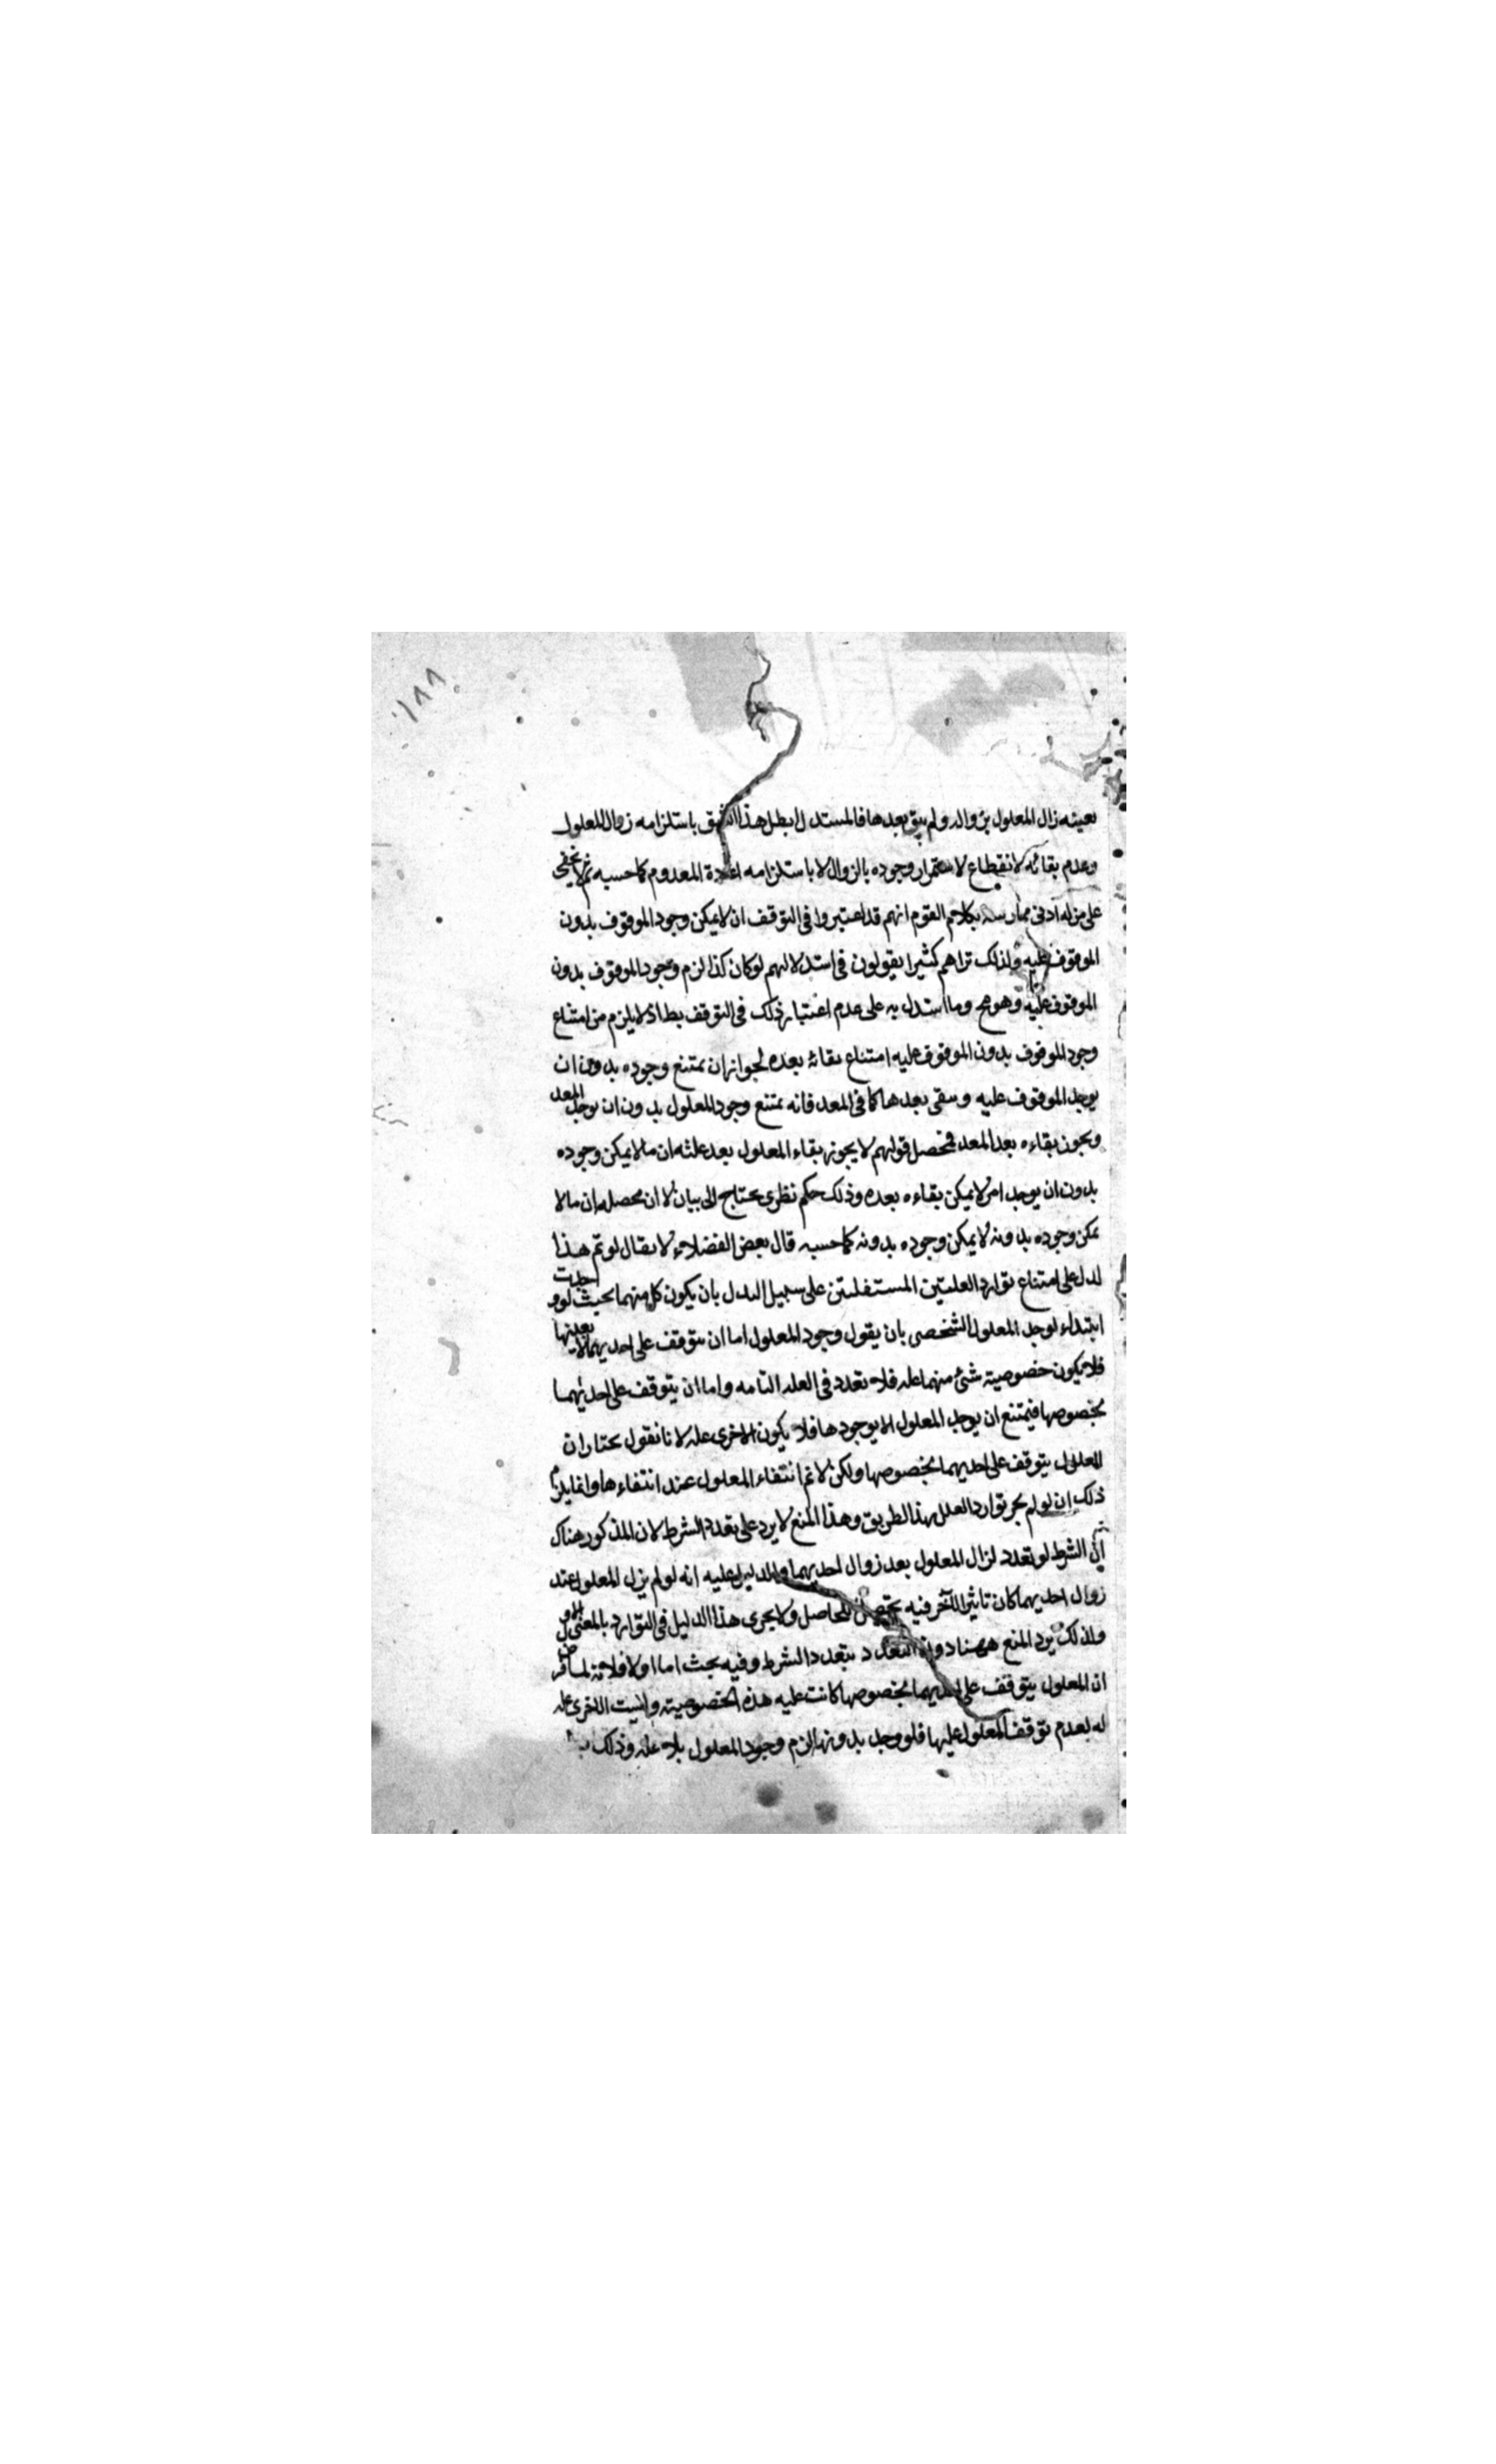 ١٨٨
بعينه زال المعلول بزواله ولم يبق بعدها فالمستدل ابطل هذا الشق باستلزامه زوال المعلول
وعدم بقائه لانقطاع لاستمرار وجوده بالزوال لا باستلزامه اعادة المعدوم كما حسبه ثم لا يخفى
على من له ادنى ممارسه بكلام القوم انهم قد اعتبروا فى التوقف ان لا يمكن وجود الموقوف بدون
الموقوف عليه ولذلك تراهم كثيرا يقولون فى استدلالهم لو كان كذا لزم وجود الموقوف بدون
الموقوف عليه وهو مح وما استدل به على عدم اعتبار ذلك فى التوقف بط اذ لا يلزم من امتناع
وجود الموقوف بدون الموقوف عليه امتناع بقائه بعده لجواز ان يمتنع وجوده بدون ان
يوجد الموقوف عليه وسقى بعدها كما فى المعد فانه يمتنع وجود المعلول بدون ان يوجد المعد
ويجوز بقاءه بعد المعد فمحصل قولهم لا يجوز بقاء المعلول بعد علته ان ما لا يمكن وجوده
بدون ان يوجد امر لا يمكن بقاءه بعده وذلك حكم نظرى يحتاج الى بيان لا ان محصله ان ما لا
يمكن وجوده بدونه لا يمكن وجوده بدونه كما حسبه قال بعض الفضلاء لا يقال لو تم هذا
لدل على امتناع توارد العلتين المستقلتين على سبيل البدل بان يكون كل منهما بحيث لو وجدت
ابتداء لوجد المعلول الشخصى بان يقول وجود المعلول اما ان يتوقف على احديهما لا بعينها
فلا يكون خصوصية شئ منهما عله فلا تعدد فى العله التامه واما ان يتوقف على احديهما
بخصوصها فيمتنع ان يوجد المعلول الا بوجودها فلا يكون الاخرى عله لانا نقول نختار ان
المعلول يتوقف على احديهما بخصوصها ولكن لا نم انتفاء المعلول عند انتفاءها وانما يلزم
ذلك ان لو لم يجز توارد العلل بهذا الطريق وهذا المنع لا يرد على تعدد الشرط لان المذكور هناك
ان الشرط لو تعدد لزال المعلول بعد زوال احديهما والدليل عليه انه لو لم يزل المعلول عند
زوال احديهما كان تاثير الآخر فيه تحصيل للحاصل ولا يجرى هذا الدليل فى التوارد بالمعنى الاول
ولذلك يرد المنع ههنا دون التعدد بتعدد الشرط وفيه بحث اما اولا فلانه لما فرض
ان المعلول يتوقف على احديهما بخصوصها كانت عليه هذه الخصوصية وليست الاخرى عله
له بعدم توقف المعلول عليها فلو وجد بدونها لزم وجود المعلول بلا عله وذلك